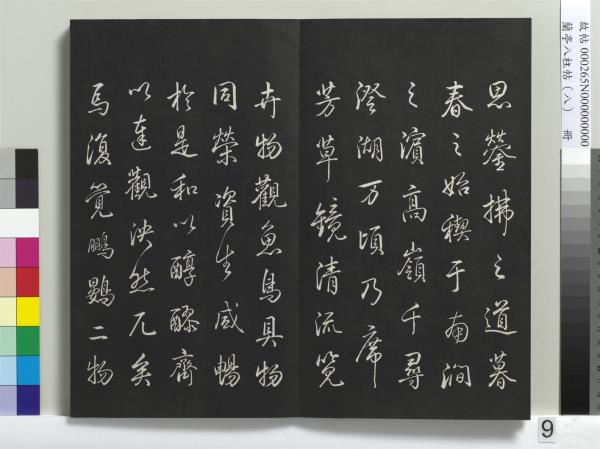 故帖 000265N000000000
蘭亭八柱帖（八） 冊
思鎣拂之道暮
春之始禊于南澗
之濱高嶺千尋
澄湖万頃乃席
芳草鏡清流覽
卉物觀魚鳥具物
同榮資生咸暢
於是和以醇醪齊
以達觀泱然兀矣
焉復覺鵬鷃二物
9